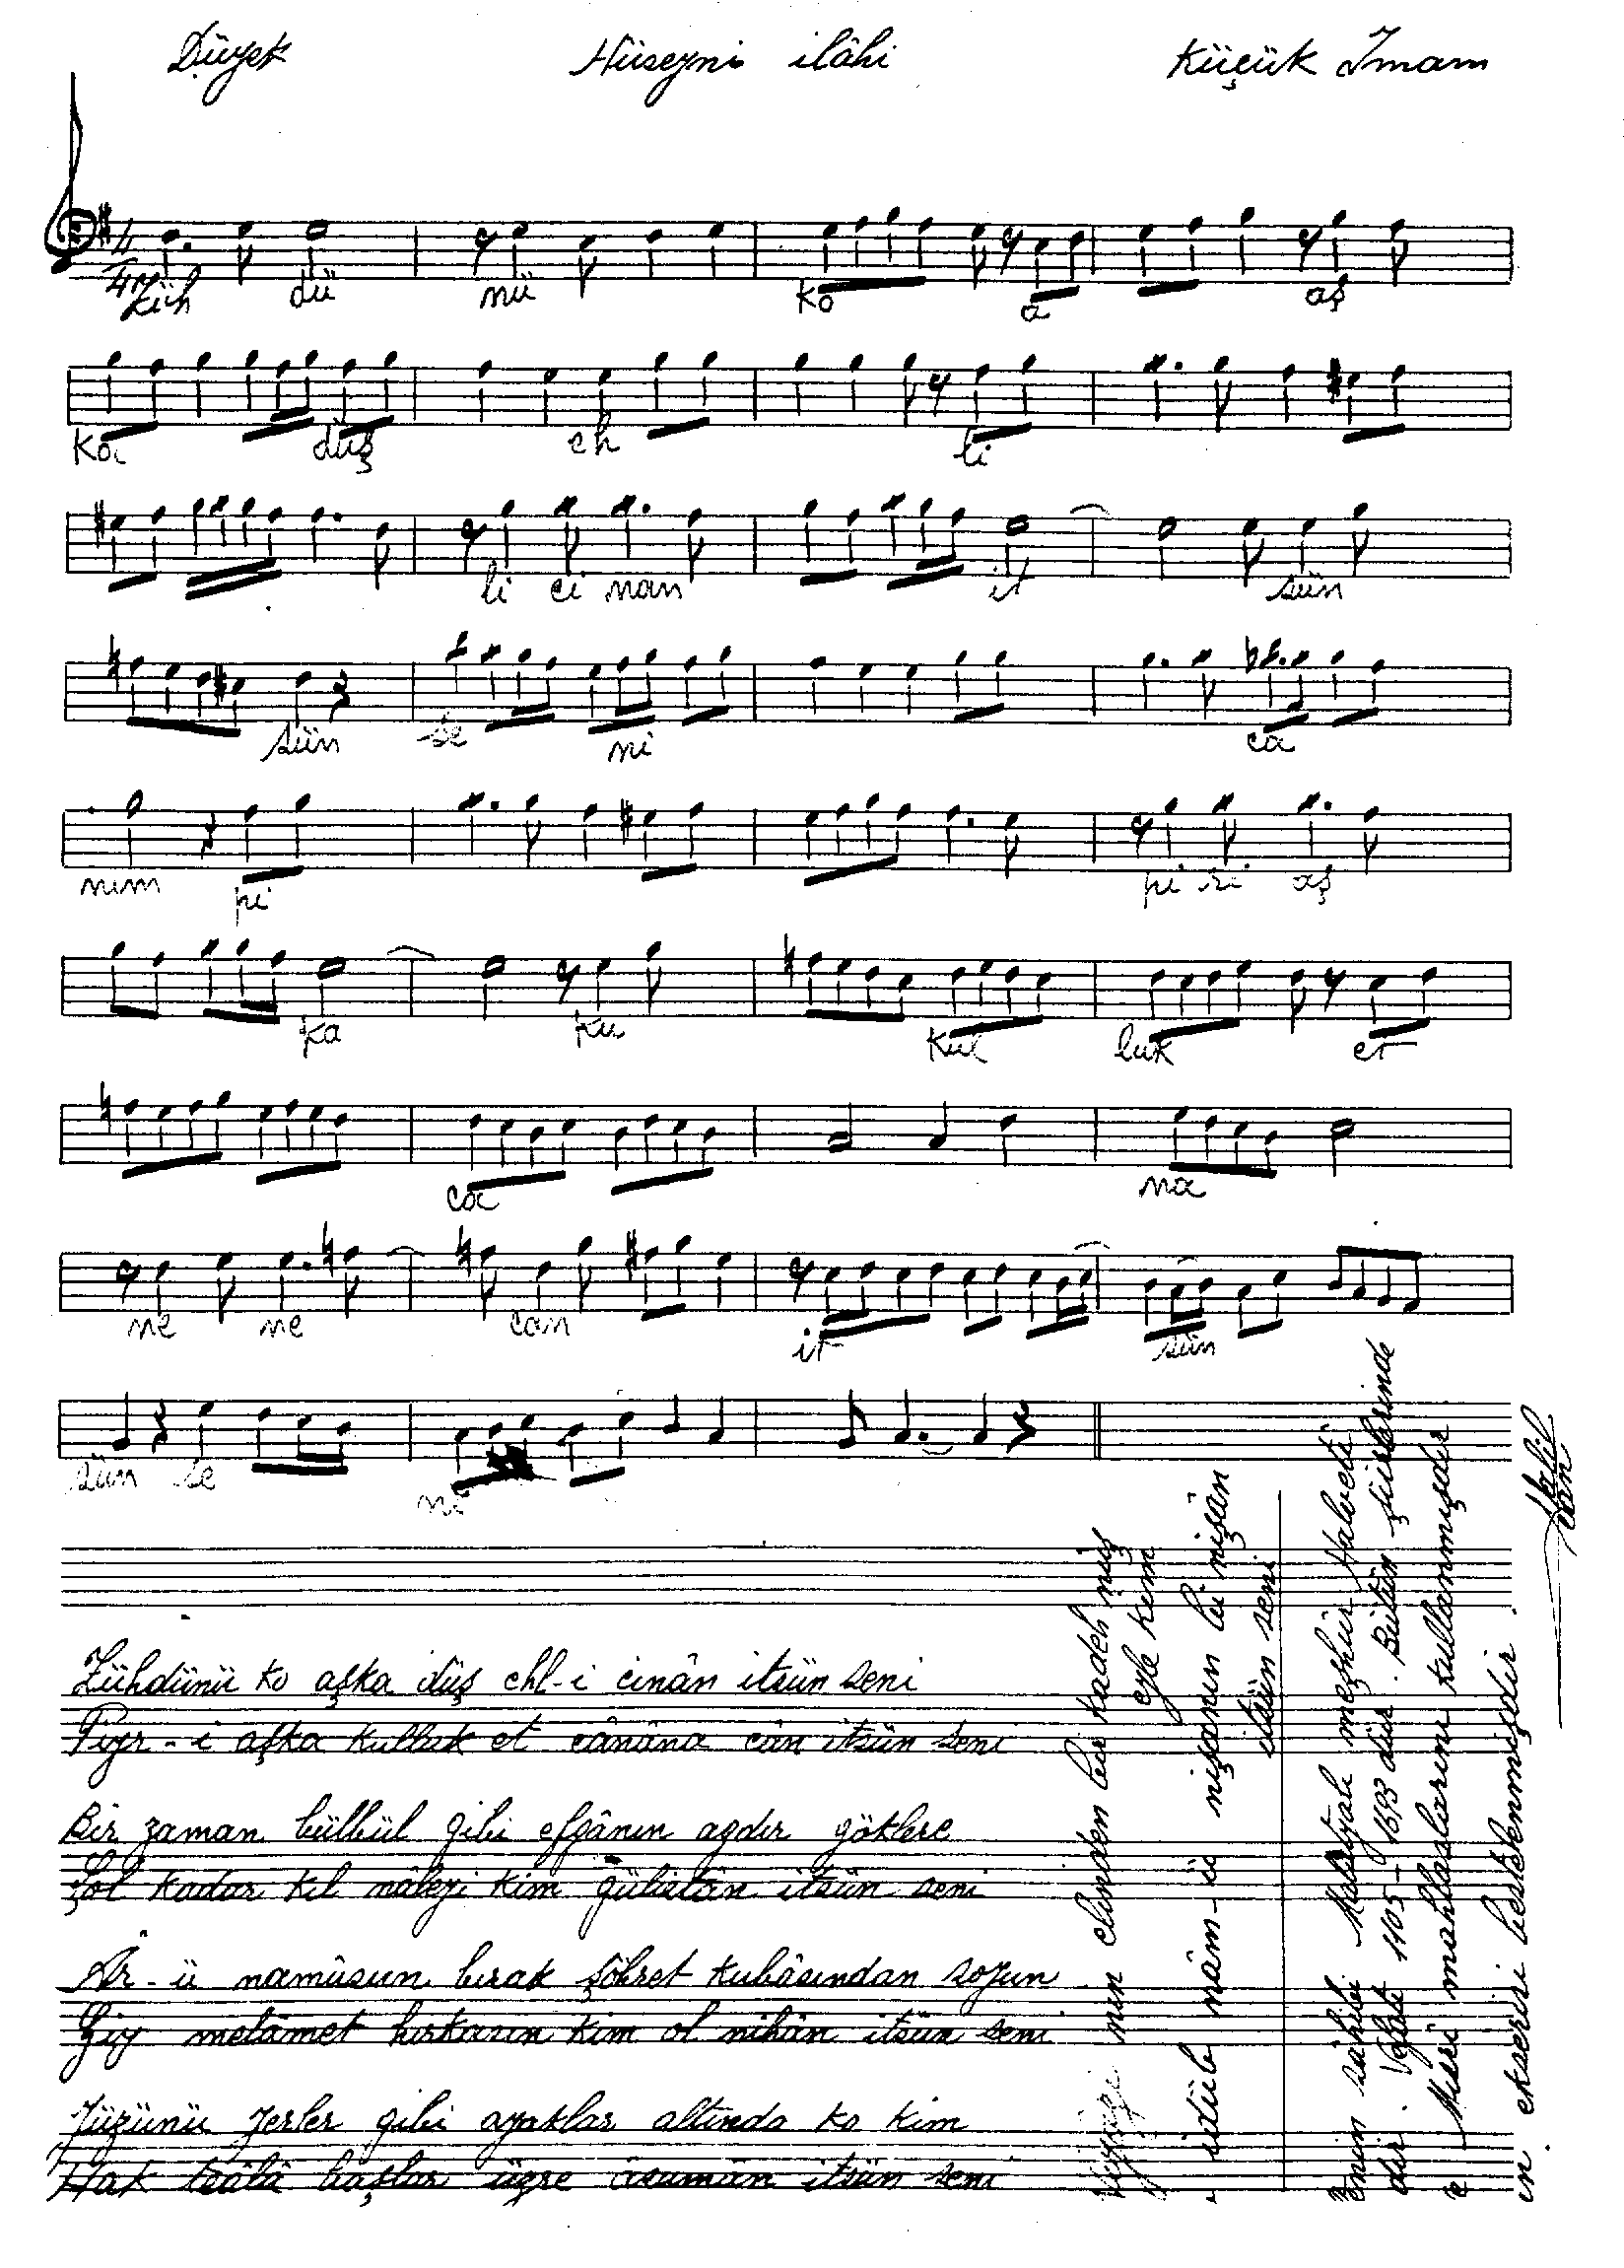 Düyek Hüseyni ilâhi Küçük Imam
4/4 Züh dü nü ko a aş
ka düş eh li
li ci nan it sün
sün se ni ca
nım pi pi ri aş
ka ku kul luk et
ca na
ne ne can it sün
sün se ni
Zühdünü ko aşka düş ehl-i cinân itsün seni
Piyr-i aşka kulluk et cânâna cân itsün seni
Bir zaman bülbül gibi efgânın ağdır göklere
Şol kadar kıl nâleyi kim gülistân itsün seni
Âr-ü namûsun bırak şöhret kubâsından soyun
Giy melâmet hırkasın kim ol nihân itsün seni
Yüzünü yerler gibi ayaklar altında ko kim
Hak teâlâ başlar üzre âsumân itsün seni
Niyazi nin elinden bir kadeh nûş
eyle kim
idüb nâm-ü nişanın bî nişân
itsün seni
sahibi Malatyalı meşhur Halvetî
dir. Vefatı 1105-1693 dür. Bütün şiirlerinde
Mısri mahlaslarını kullanmışdır
ekserisi bestelenmişdir.
Halil
Can